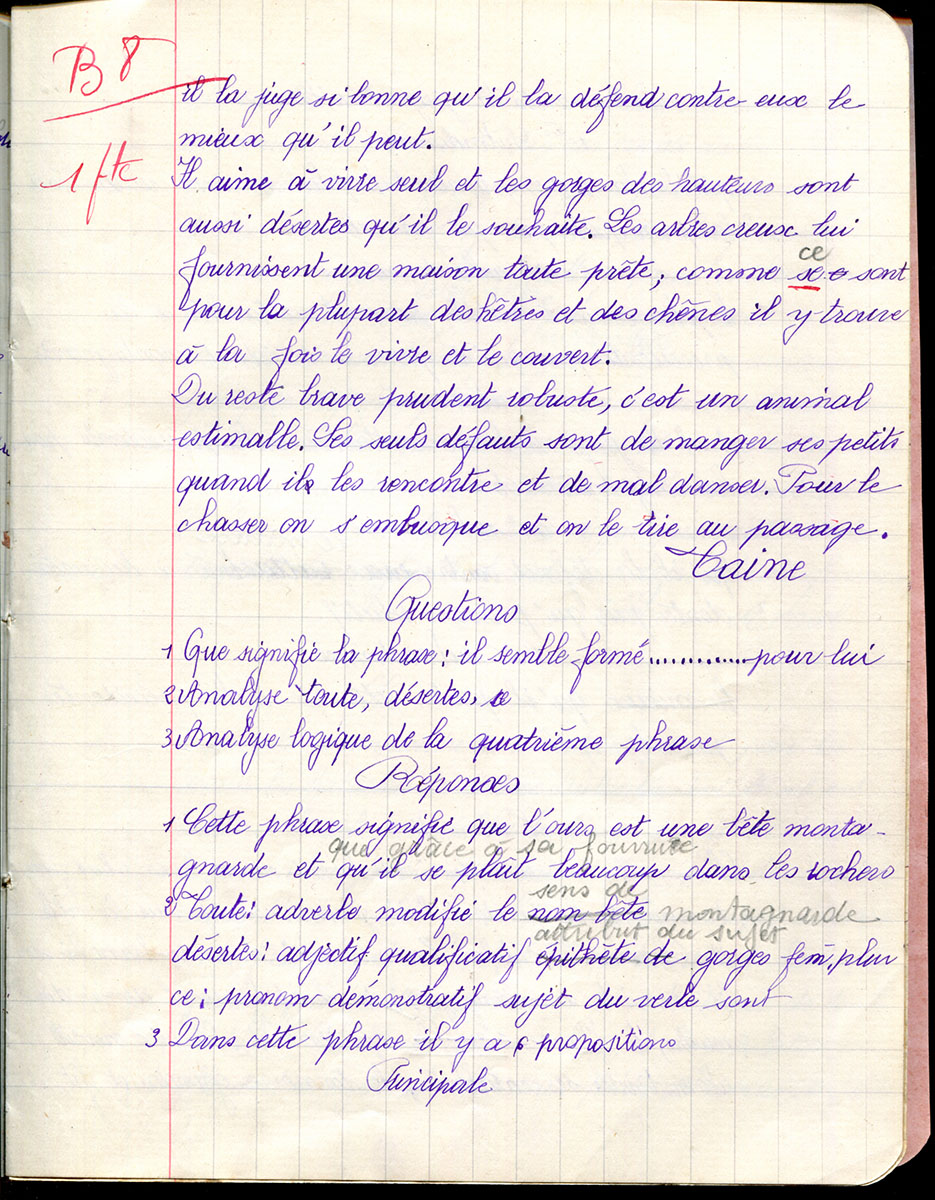 B 8
1 fte
il la juge si bonne qu'il la défend contre eux le
mieux qu'il peut.
Il aime à vivre seul et les gorges des hauteurs sont
aussi désertes qu'il le souhaite. Les arbres creux lui
ce
fournissent une maison toute prête ; comme se sont
pour la plupart des hêtres et des chênes il y trouve
à la fois le vivre et le couvert.
Du reste brave prudent robuste, c'est un animal
estimable. Ses seuls défauts sont de manger ses petits
quand il les rencontre et de mal danser. Pour le
chasser on s'embusque et on le tire au passage.
Taine
Questions
1 Que signifie la phrase : il semble formé............pour lui
2 Analyse toute, désertes,
3 Analyse logique de la quatrième phrase
Réponses
1 Cette phrase signifie que l'ours est une bête monta-
que grâce à sa fourrure
gnarde et qu'il se plaît beaucoup dans les rochers
sens de
2 Toute : adverbe modifie le nom bête montagnarde
attribut du sujet
désertes : adjectif qualificatif épithète de gorges fem. plur
ce : pronom démonstratif sujet du verbe sont
3 Dans cette phrase il y a propositions
Principale